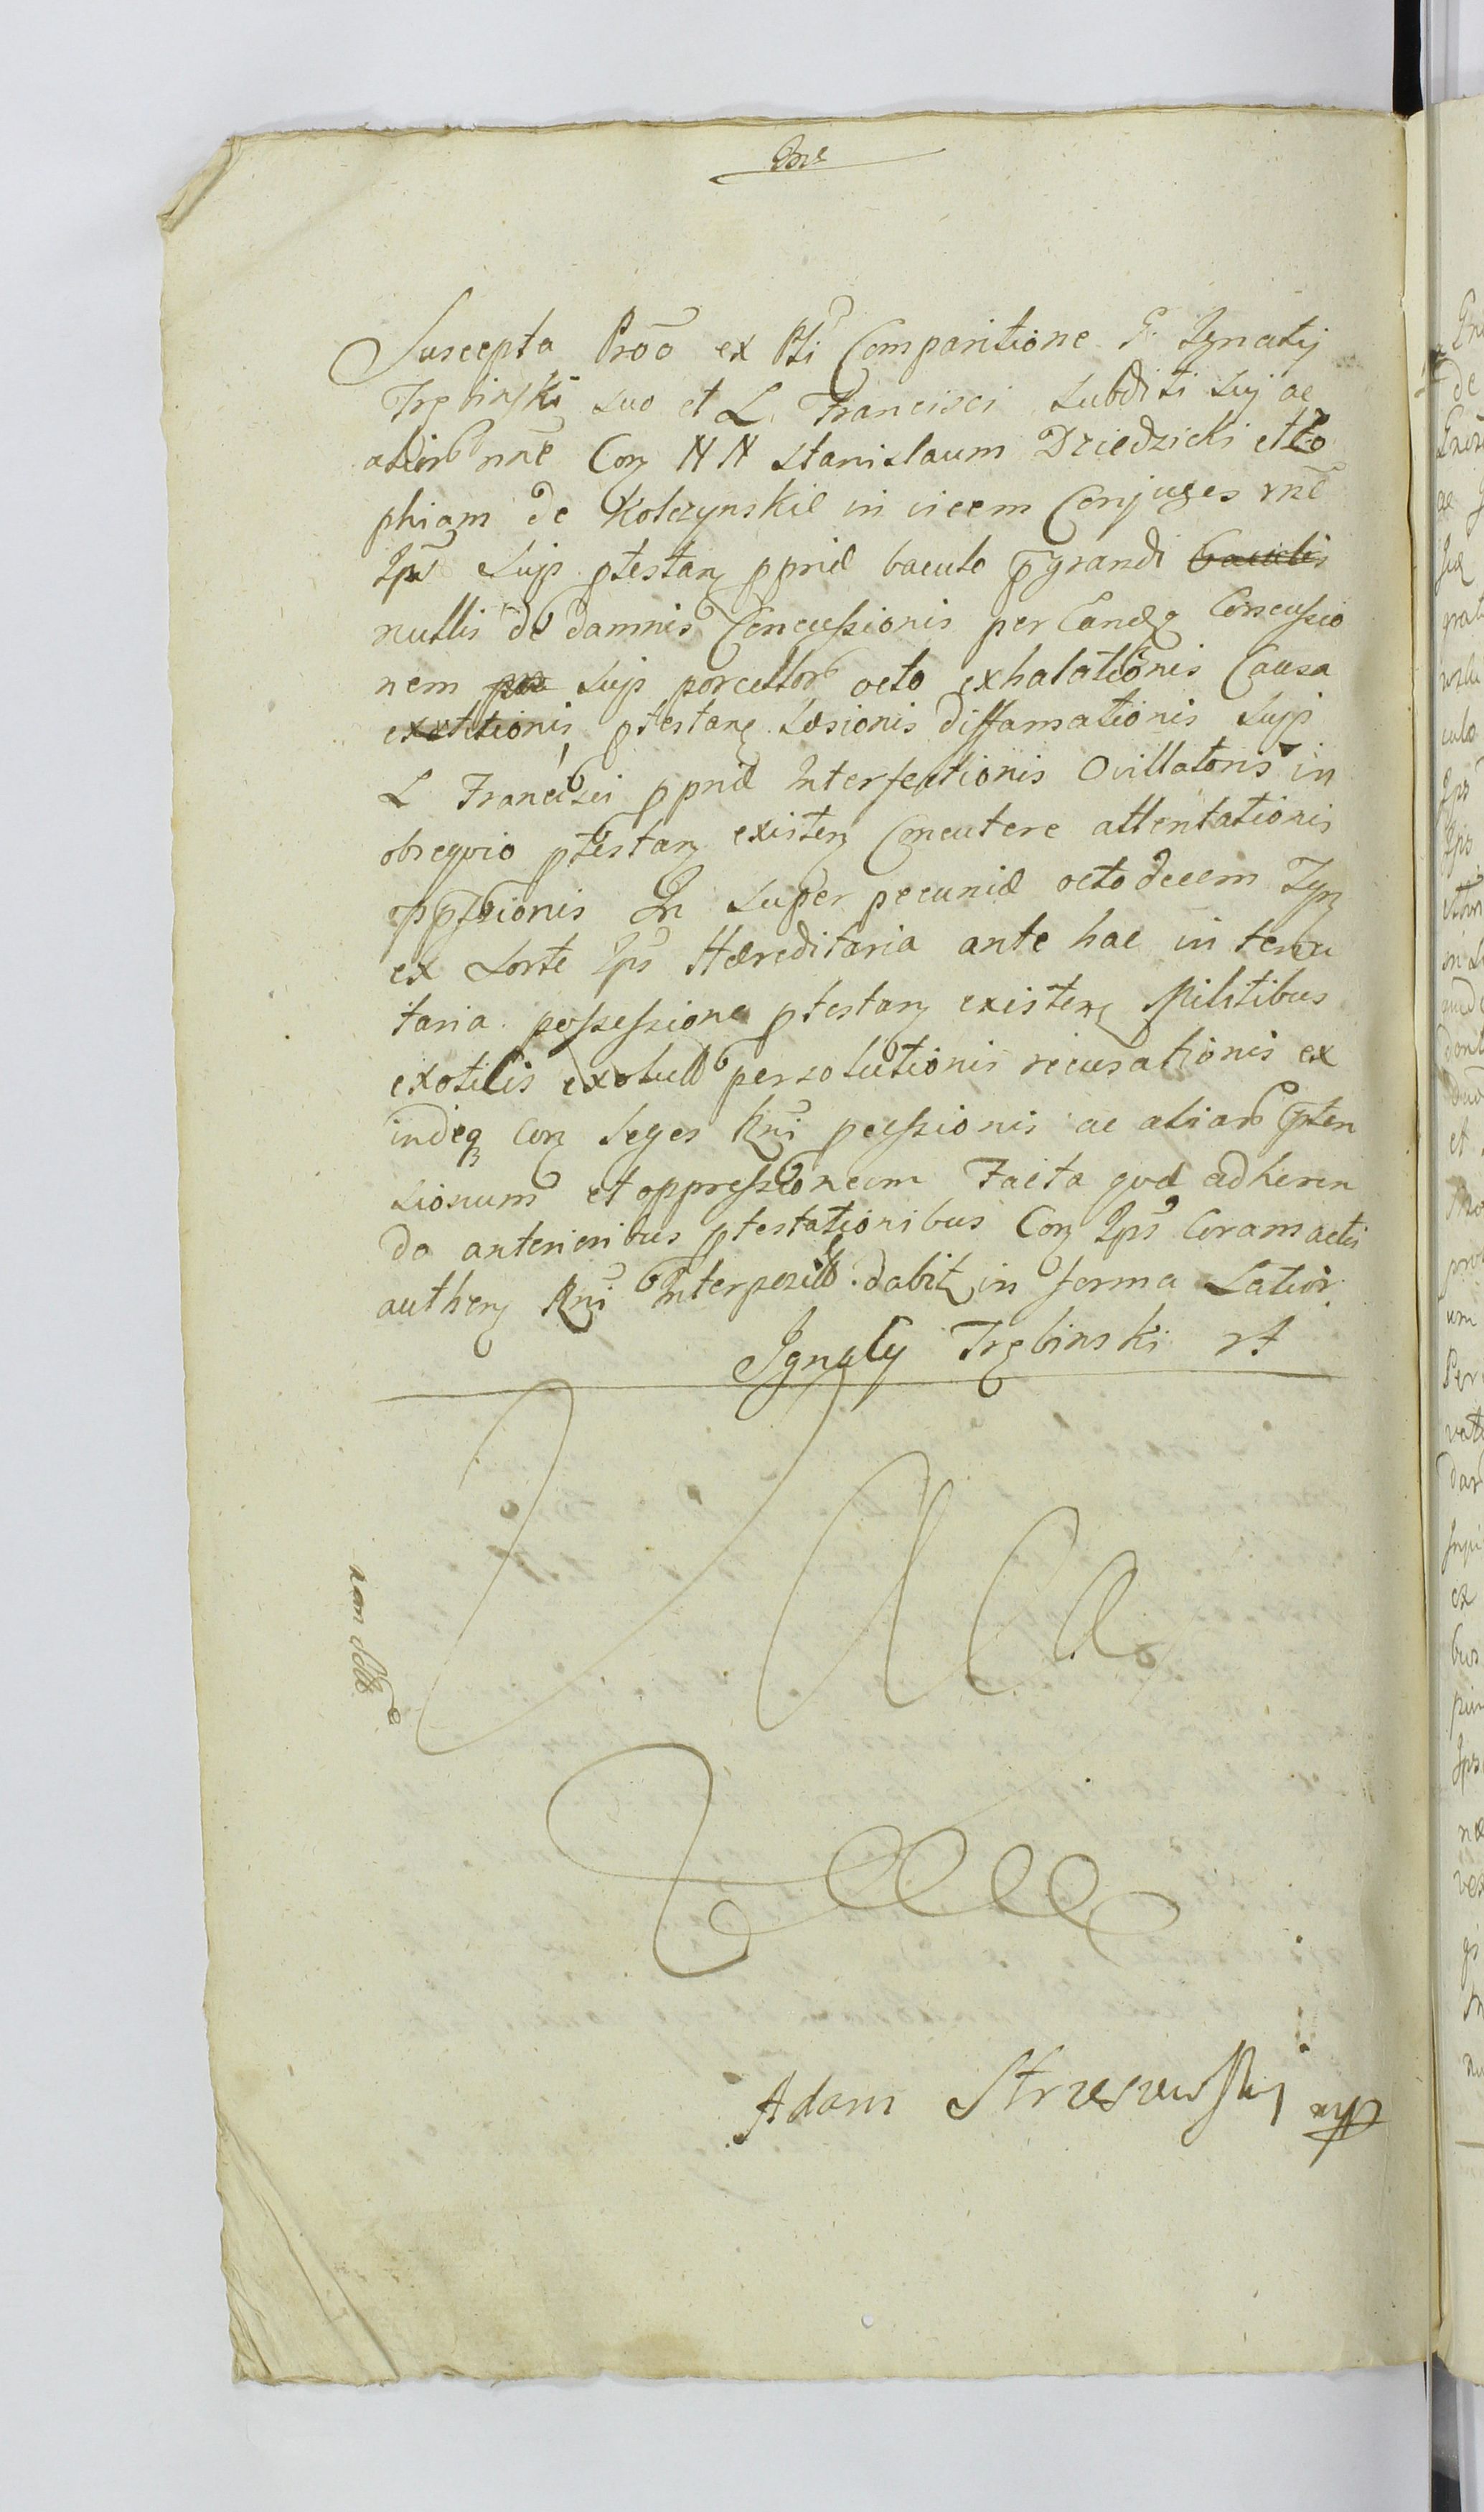 Suscepta Proõ ex Pti Comparitione G. Ignatij
Trębinski suo et L. Francisci subditi sui ac
alior nñe Con NN Stanislaum Dziedzicki et Zo
phiam de Kolczynskie in vicem Conjuges rñe
Ips Sup ptestan pprie baculo pgrandi baculis
nullis de damnis Concussionis per Eandq Concussio
nem per Sup porcellor octo exhalationis Causa
ptestans Læsionis diffamationis Sup
L Francisci ppriæ Interfectionis Ovillatoris in
obsequio ptestan existen Concutere attentationis
oppssionis In super pecuniæ octodecem Tyn
ex Sorte Ips Hæreditaria ante hac in tenu
taria possessione ptestan existen Militibus
exolut persolutionis recusationis ex
indeq con Leges Rni pcessionis ac aliar pten
sionum et oppressionum Facta qvd adheren
do anterioribus ptestationibus Con Ips Coram actis
authen Rni Interposit dabit in forma Latior
Ignacy Trębinski rt
non
Adam Strzeszewski mp